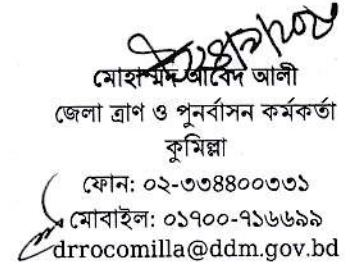 মোহাম্মদ আবেদ আলী
জেলা ত্রাণ ও পুনর্বাসন কর্মকর্তা
কুমিল্লা
ফোন: ০২-৩৩৪৪০০৩৩১
মোবাইল: ০১৭০০-৭১৬৬৯৯
drrocomilla@ddm.gov.bd